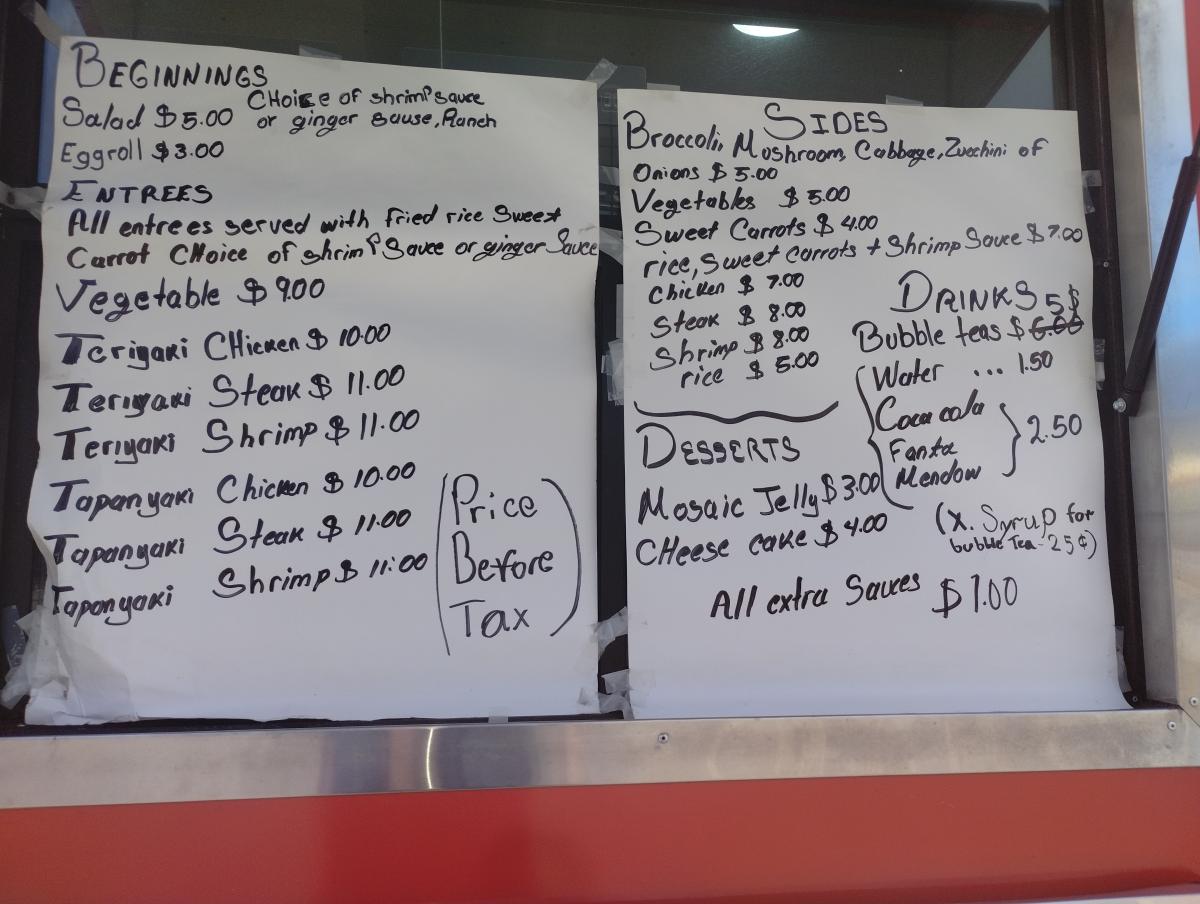 BEGINNINGS
Salad $5.00 CHoice of shrimp sauce
or ginger sause, Ranch
Eggroll $3.00
ENTREES
All entrees served with fried rice Sweet
Carrot CHoice of shrimp Sauce or ginger Sauce
Vegetable $9.00
Teriyaki CHicken $ 10.00
Teriyaki Steak $ 11.00
Teriyaki Shrimp $ 11.00
Tapanyaki Chicken $ 10.00
Tapanyaki Steak $ 11.00
Tapanyaki Shrimp $ 11:00
(Price
Before
Tax)
SIDES
Broccoli, Moshroom, Cabbage, Zucchini of
Onions $ 5.00
Vegetables $ 5.00
Sweet Carrots $ 4.00
rice, Sweet carrots + Shrimp Sauce $7.00
Chicken $ 7.00
Steak $ 8.00
Shrimp $ 8.00
rice $ 5.00
DRINKS
5$
Bubble teas $ 6.00
Water ... 1.50
Coca cola
Fanta
Mendow
2.50
(X. Syrup for
bubble Tea - 25¢)
DESSERTS
Mosaic Jelly $3.00
CHeese cake $4.00
All extra Sauces $1.00